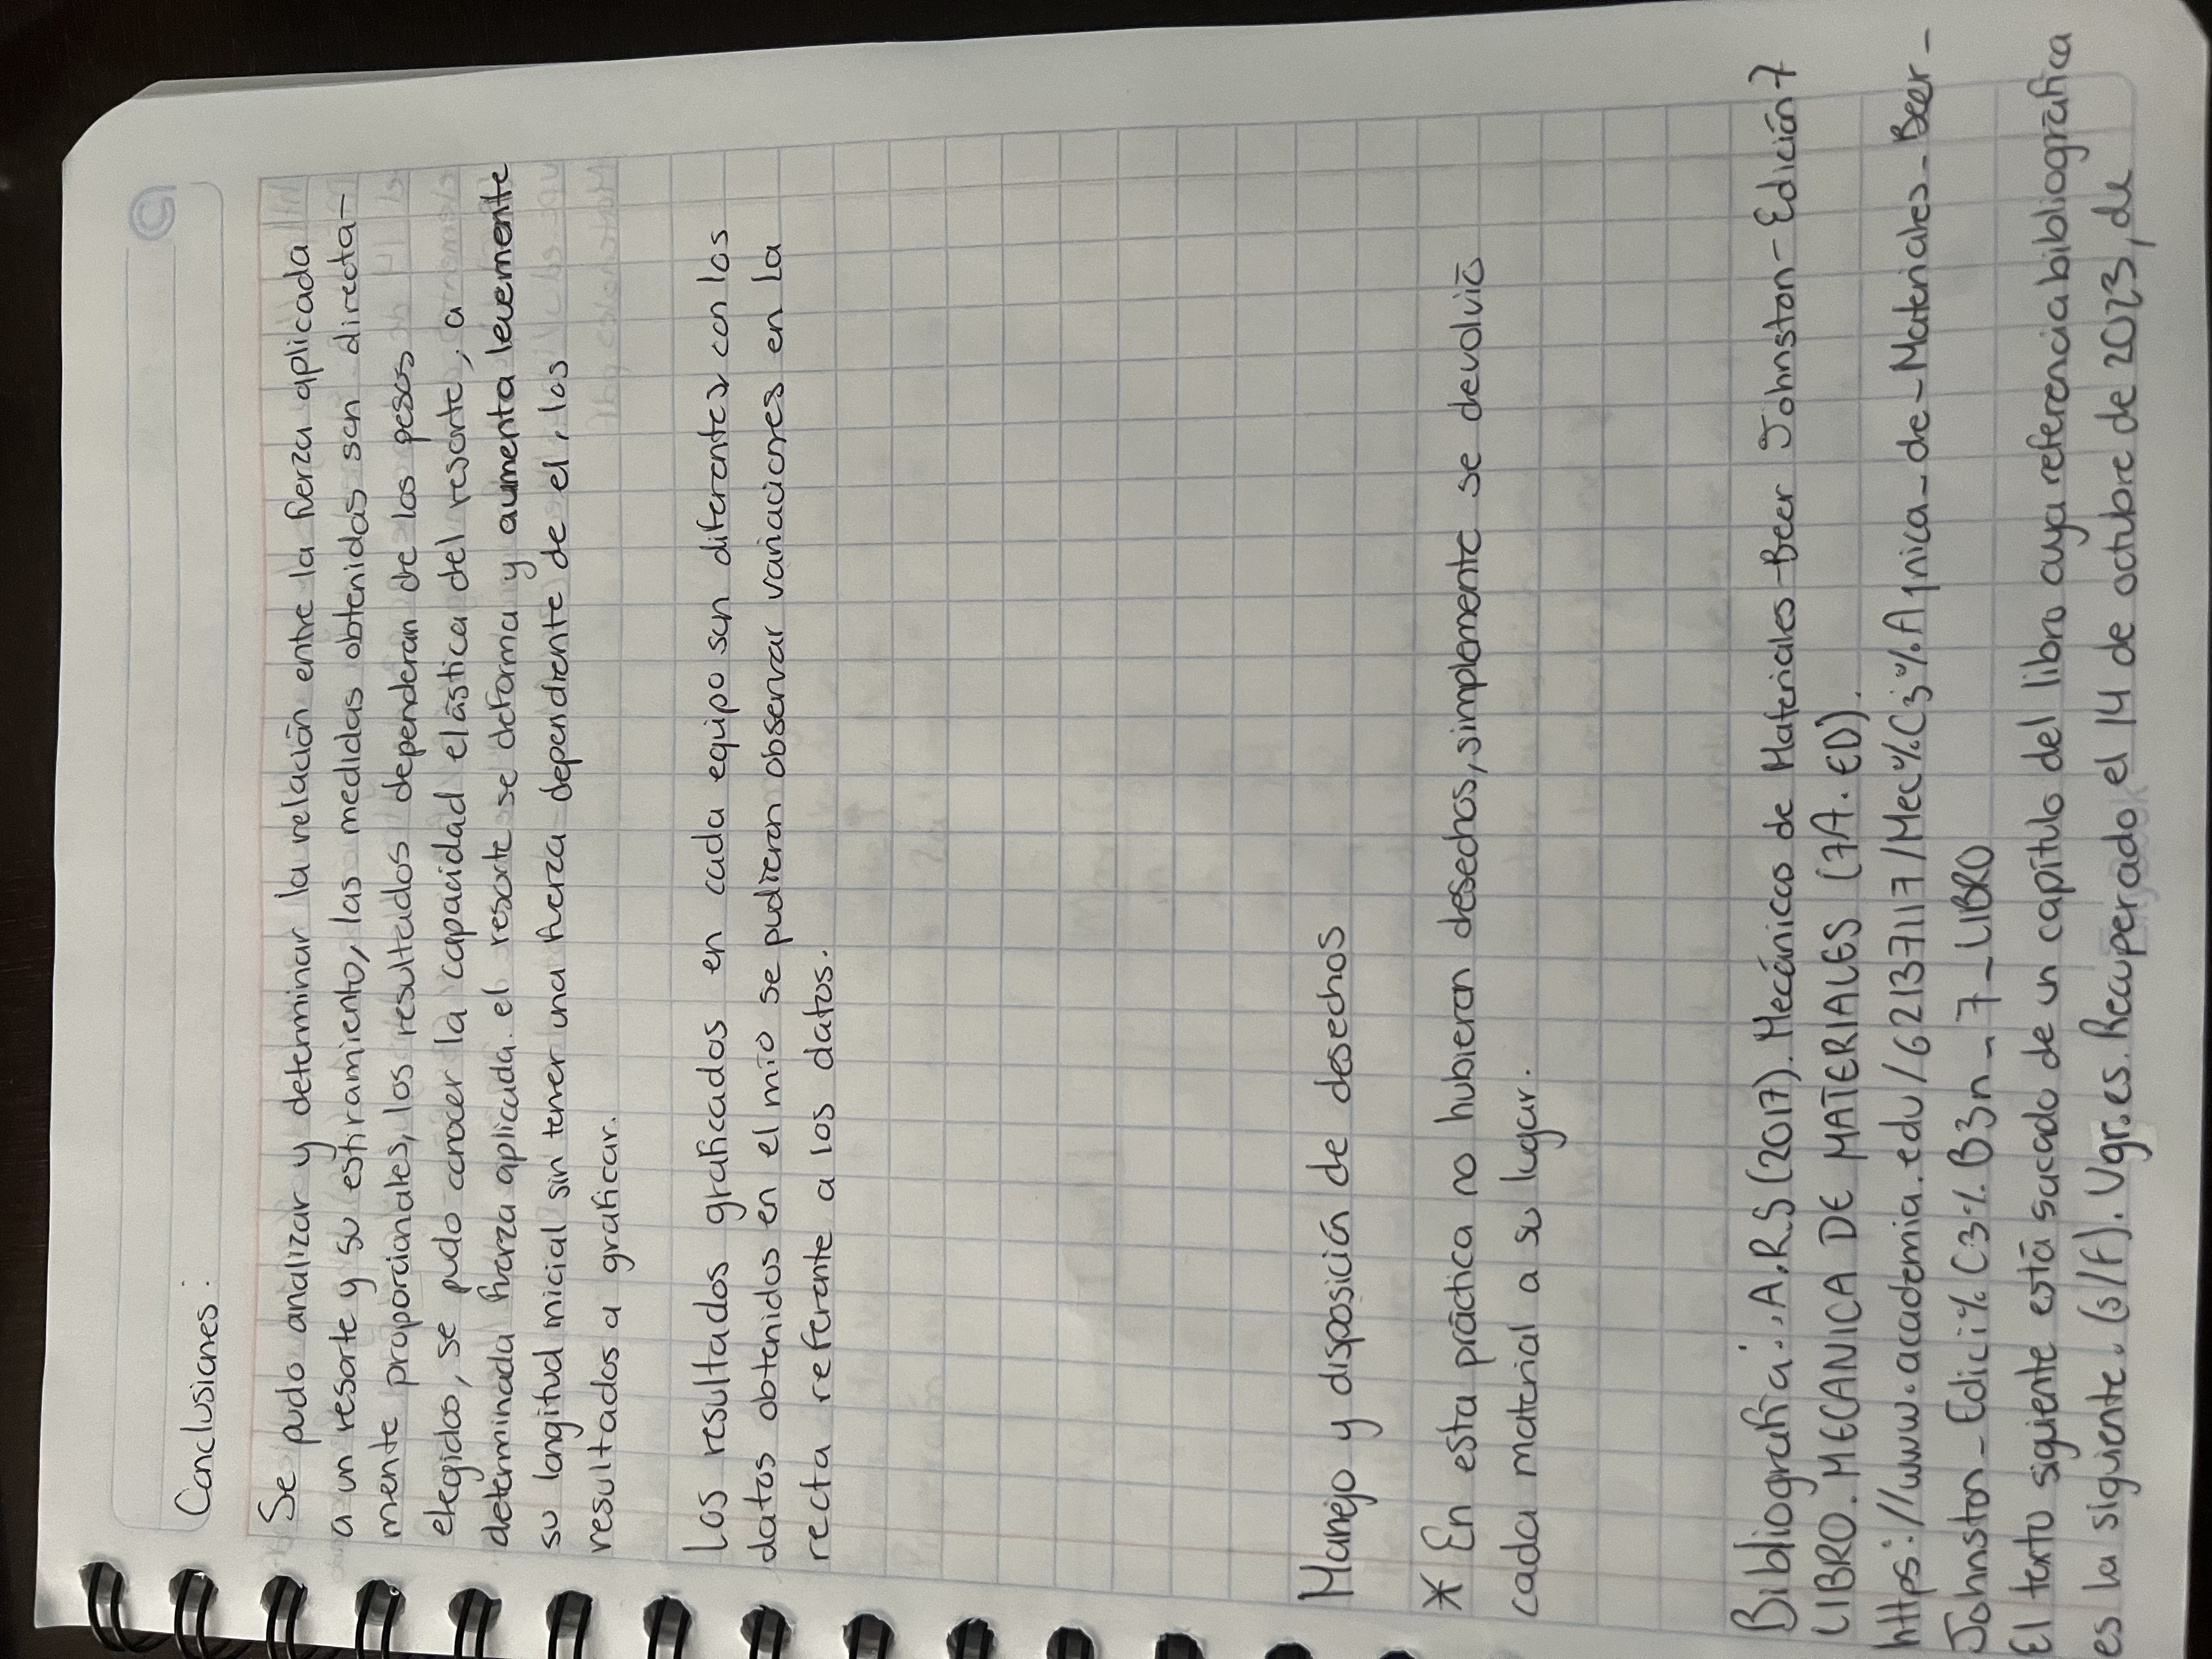 Conclusiones:
Se pudo analizar y determinar la relación entre la fuerza aplicada
a un resorte y su estiramiento, las medidas obtenidas son directa-
mente proporcionales, los resultados dependeran de los pesos
elegidos, se pudo conocer la capacidad elástica del resorte, a
determinada fuerza aplicada. el resorte se deforma y aumenta levemente
su longitud inicial sin tener una fuerza dependiente de el, los
resultados a graficar.
Los resultados graficados en cada equipo son diferentes con los
datos obtenidos en el mío se pudieron observar variaciones en la
recta referente a los datos.
Manejo y disposición de desechos
* En esta práctica no hubieron desechos, simplemente se devolvió
cada material a su lugar.
Bibliografia: , A.R.S (2017). Mecánicas de Materiales - Beer Johnston - Edición 7
LIBRO. MECANICA DE MATERIALES (7A. ED).
https://www.academia.edu/62137117/Mec%C3%A1nica_de_Materiales_Beer_
Johnston_Edici%C3%B3n_7_LIBRO
El texto siguiente está sacado de un capítulo del libro cuya referencia bibliográfica
es la siguiente. (s/f). Ugr.es. Recuperado el 14 de octubre de 2023, de